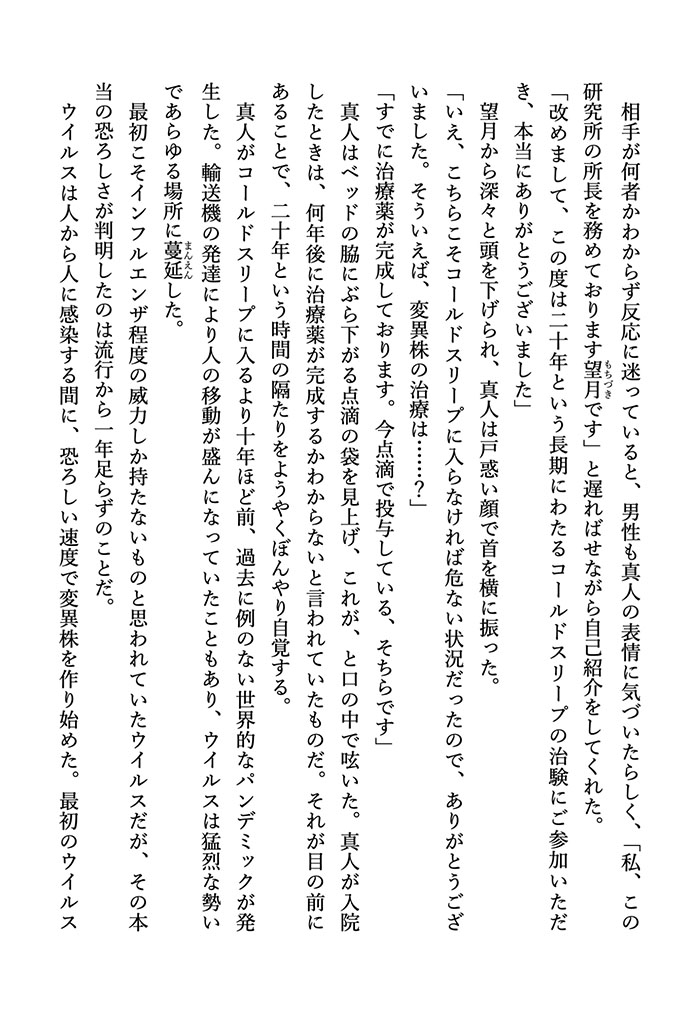 相手が何者かわからず反応に迷っていると、男性も真人の表情に気づいたらしく、「私、この
研究所の所長を務めております望月です」と遅ればせながら自己紹介をしてくれた。
「改めまして、この度は二十年という長期にわたるコールドスリープの治験にご参加いただ
き、本当にありがとうございました」
　望月から深々と頭を下げられ、真人は戸惑い顔で首を横に振った。
「いえ、こちらこそコールドスリープに入らなければ危ない状況だったので、ありがとうござ
いました。そういえば、変異株の治療は……？」
「すでに治療薬が完成しております。今点滴で投与している、そちらです」
　真人はベッドの脇にぶら下がる点滴の袋を見上げ、これが、と口の中で呟いた。真人が入院
したときは、何年後に治療薬が完成するかわからないと言われていたものだ。それが目の前に
あることで、二十年という時間の隔たりをようやくぼんやり自覚する。
　真人がコールドスリープに入るより十年ほど前、過去に例のない世界的なパンデミックが発
生した。輸送機の発達により人の移動が盛んになっていたこともあり、ウイルスは猛烈な勢い
であらゆる場所に蔓延した。
　最初こそインフルエンザ程度の威力しか持たないものと思われていたウイルスだが、その本
当の恐ろしさが判明したのは流行から一年足らずのことだ。
　ウイルスは人から人に感染する間に、恐ろしい速度で変異株を作り始めた。最初のウイルス